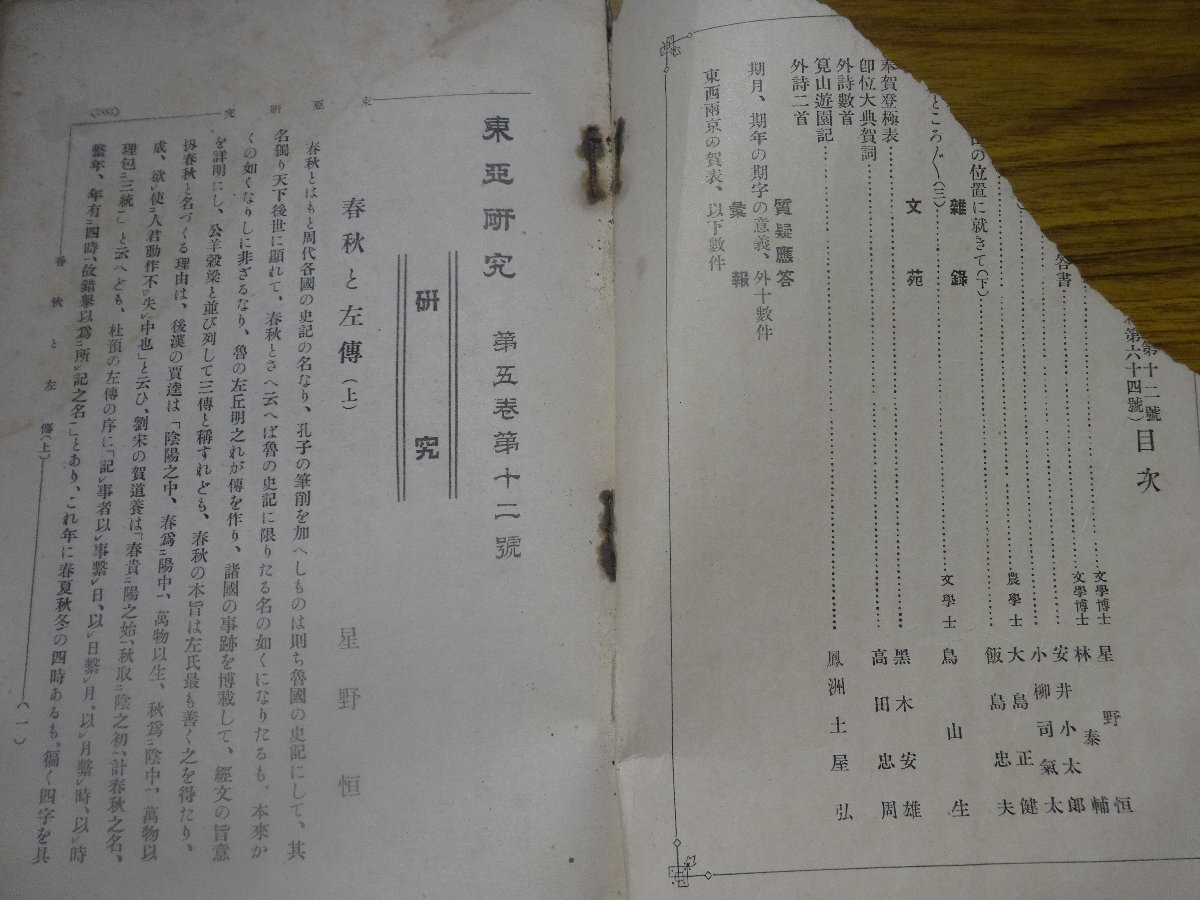 第十二號
第六十四號）
目次
文學博士 星野恒
文學博士 林泰輔
安井小太郎
答書
小柳司氣太
農學士 大島正健
飯島忠夫
の位置に就きて（下）
雜錄
ところ〴〵（三） 文學士 鳥山生
文苑
奉賀登極表 黑木安雄
卽位大典賀詞 高田忠周
外詩數首
筧山遊園記 鳳洲土屋弘
外詩二首
質疑應答
期月、期年の期字の意義、外十數件
彙報
東西兩京の賀表、以下數件
東亞研究 第五卷第十二號
研究
春秋と左傳（上）
星野恒
春秋とはもと周代各國の史記の名なり、孔子の筆削を加へしものは則ち魯國の史記にして、其
名獨り天下後世に顯れて、春秋とさへ云へば魯の史記に限りたる名の如くになりたるも、本來か
くの如くなりしに非ざるなり、魯の左丘明之れが傳を作り、諸國の事跡を博載して、經文の旨意
を詳明にし、公羊穀梁と並び列して三傳と稱すれども、春秋の本旨は左氏最も善く之を得たり、
扨春秋と名づくる理由は、後漢の賈逵は「陰陽之中、春爲㆓陽中㆒、萬物以生、秋爲㆓陰中㆒、萬物以
成、欲㆑使㆓人君動作不㆑失㆑中也」と云ひ、劉宋の賀道養は「春貴㆓陽之始㆒、秋取㆓陰之初㆒、計春秋之名、
理包㆓三統㆒」と云へども、杜預の左傳の序に「記㆑事者以㆑事繫㆑日、以㆑日繫㆑月、以㆑月繫㆑時、以㆑時
繫年、年有㆓四時㆒、故錯擧以爲㆓所㆑記之名㆒」とあり、これ年に春夏秋冬の四時あるも、徧く四字を具
東亞研究
春秋と左傳（上）
（一）